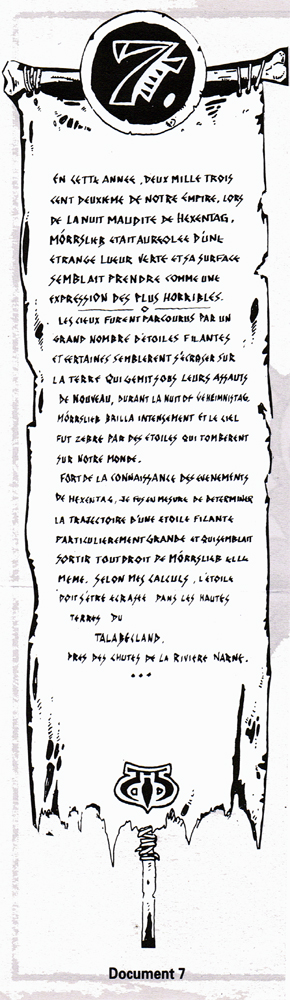 7.
EN CETTE ANNEE, DEUX MILLE TROIS
CENT DEUXIEME DE NOTRE EMPIRE, LORS
DE LA NUIT MAUDITE DE HEXENTAG,
MÓRRSLIEB ETAIT AUREOLEE D'UNE
ETRANGE LUEUR VERTE ET SA SURFACE
SEMBLAIT PRENDRE COMME UNE
EXPRESSION DES PLUS HORRIBLES.
LES CIEUX FURENT PARCOURUS PAR UN
GRAND NOMBRE D'ETOILES FILANTES
ET CERTAINES SEMBLERENT S'ECRASER SUR
LA TERRE QUI GEMIT SOUS LEURS ASSAUTS
DE NOUVEAU, DURANT LA NUIT DE GEHEIMNISTAG,
MÓRRSLIEB BRILLA INTENSEMENT ET LE CIEL
FUT ZEBRE PAR DES ETOILES QUI TOMBERENT
SUR NOTRE MONDE.
FORT DE LA CONNAISSANCE DES EVENEMENTS
DE HEXENTAG, JE FUS EN MESURE DE DETERMINER
LA TRAJECTOIRE D'UNE ETOILE FILANTE
PARTICULIEREMENT GRANDE ET QUI SEMBLAIT
SORTIR TOUT DROIT DE MÓRRSLIEB ELLE
MEME. SELON MES CALCULS, L'ETOILE
DOIT S'ETRE ECRASEE DANS LES HAUTES
TERRES DU
TALABECLAND,
PRES DES CHUTES DE LA RIVIERE NARNE.
...
Document 7